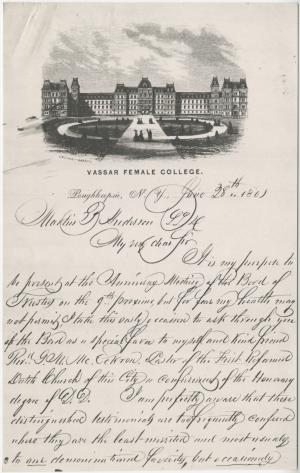 VASSAR FEMALE COLLEGE.
Poughkeepsie, N. Y., June 28th 1861
Martin B Anderson
My very dear Sir
It is my purpose to
be present at the Meeting of the Bord of
Trustees on the 9th proximo but for fear my health may
not permit I take this early occasion to ask through you
of the Bord as a special favor to myself and kind friend
Revd G. M. McEckron, Pastor of the First Reformed
Dutch Church of this City a conferment of the Honorary
degree of D.D. I am perfectly aware that these
distinguished testimonials are too frequently confered
where they are the least merited and most usualy
to one denominational favority, but occasionaly